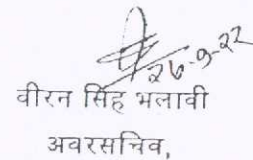 26-9-22
वीरन सिंह भलावी
अवरसचिव,